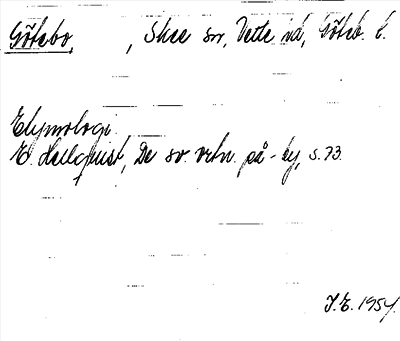 Götebo, , Skee sn, Vette hd, Göteb. l.
Etymologi.
E. Hellquist, De sv. ortn. på -by, s. 73.
J.E. 1954.